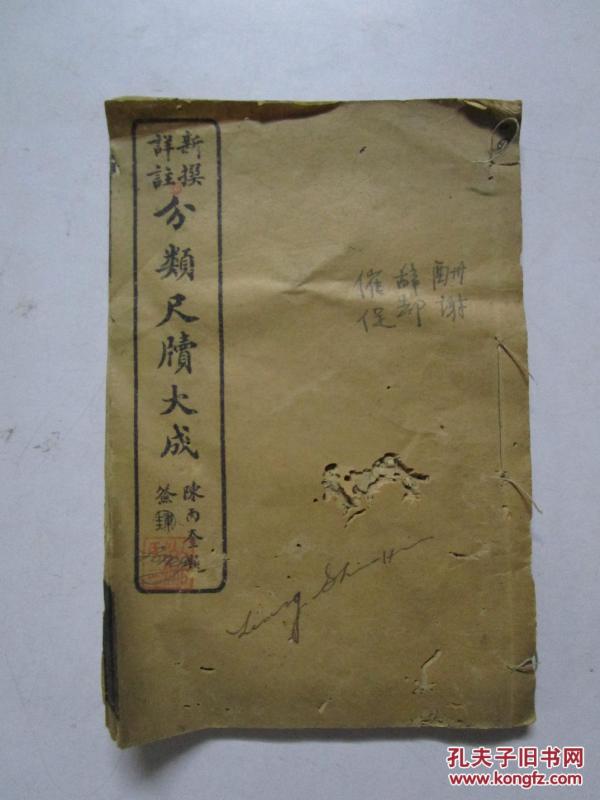 新撰
詳註
分類尺牘大成
陳丙奎
酬謝
辭却
催促
孔夫子旧书网
www.kongfz.com